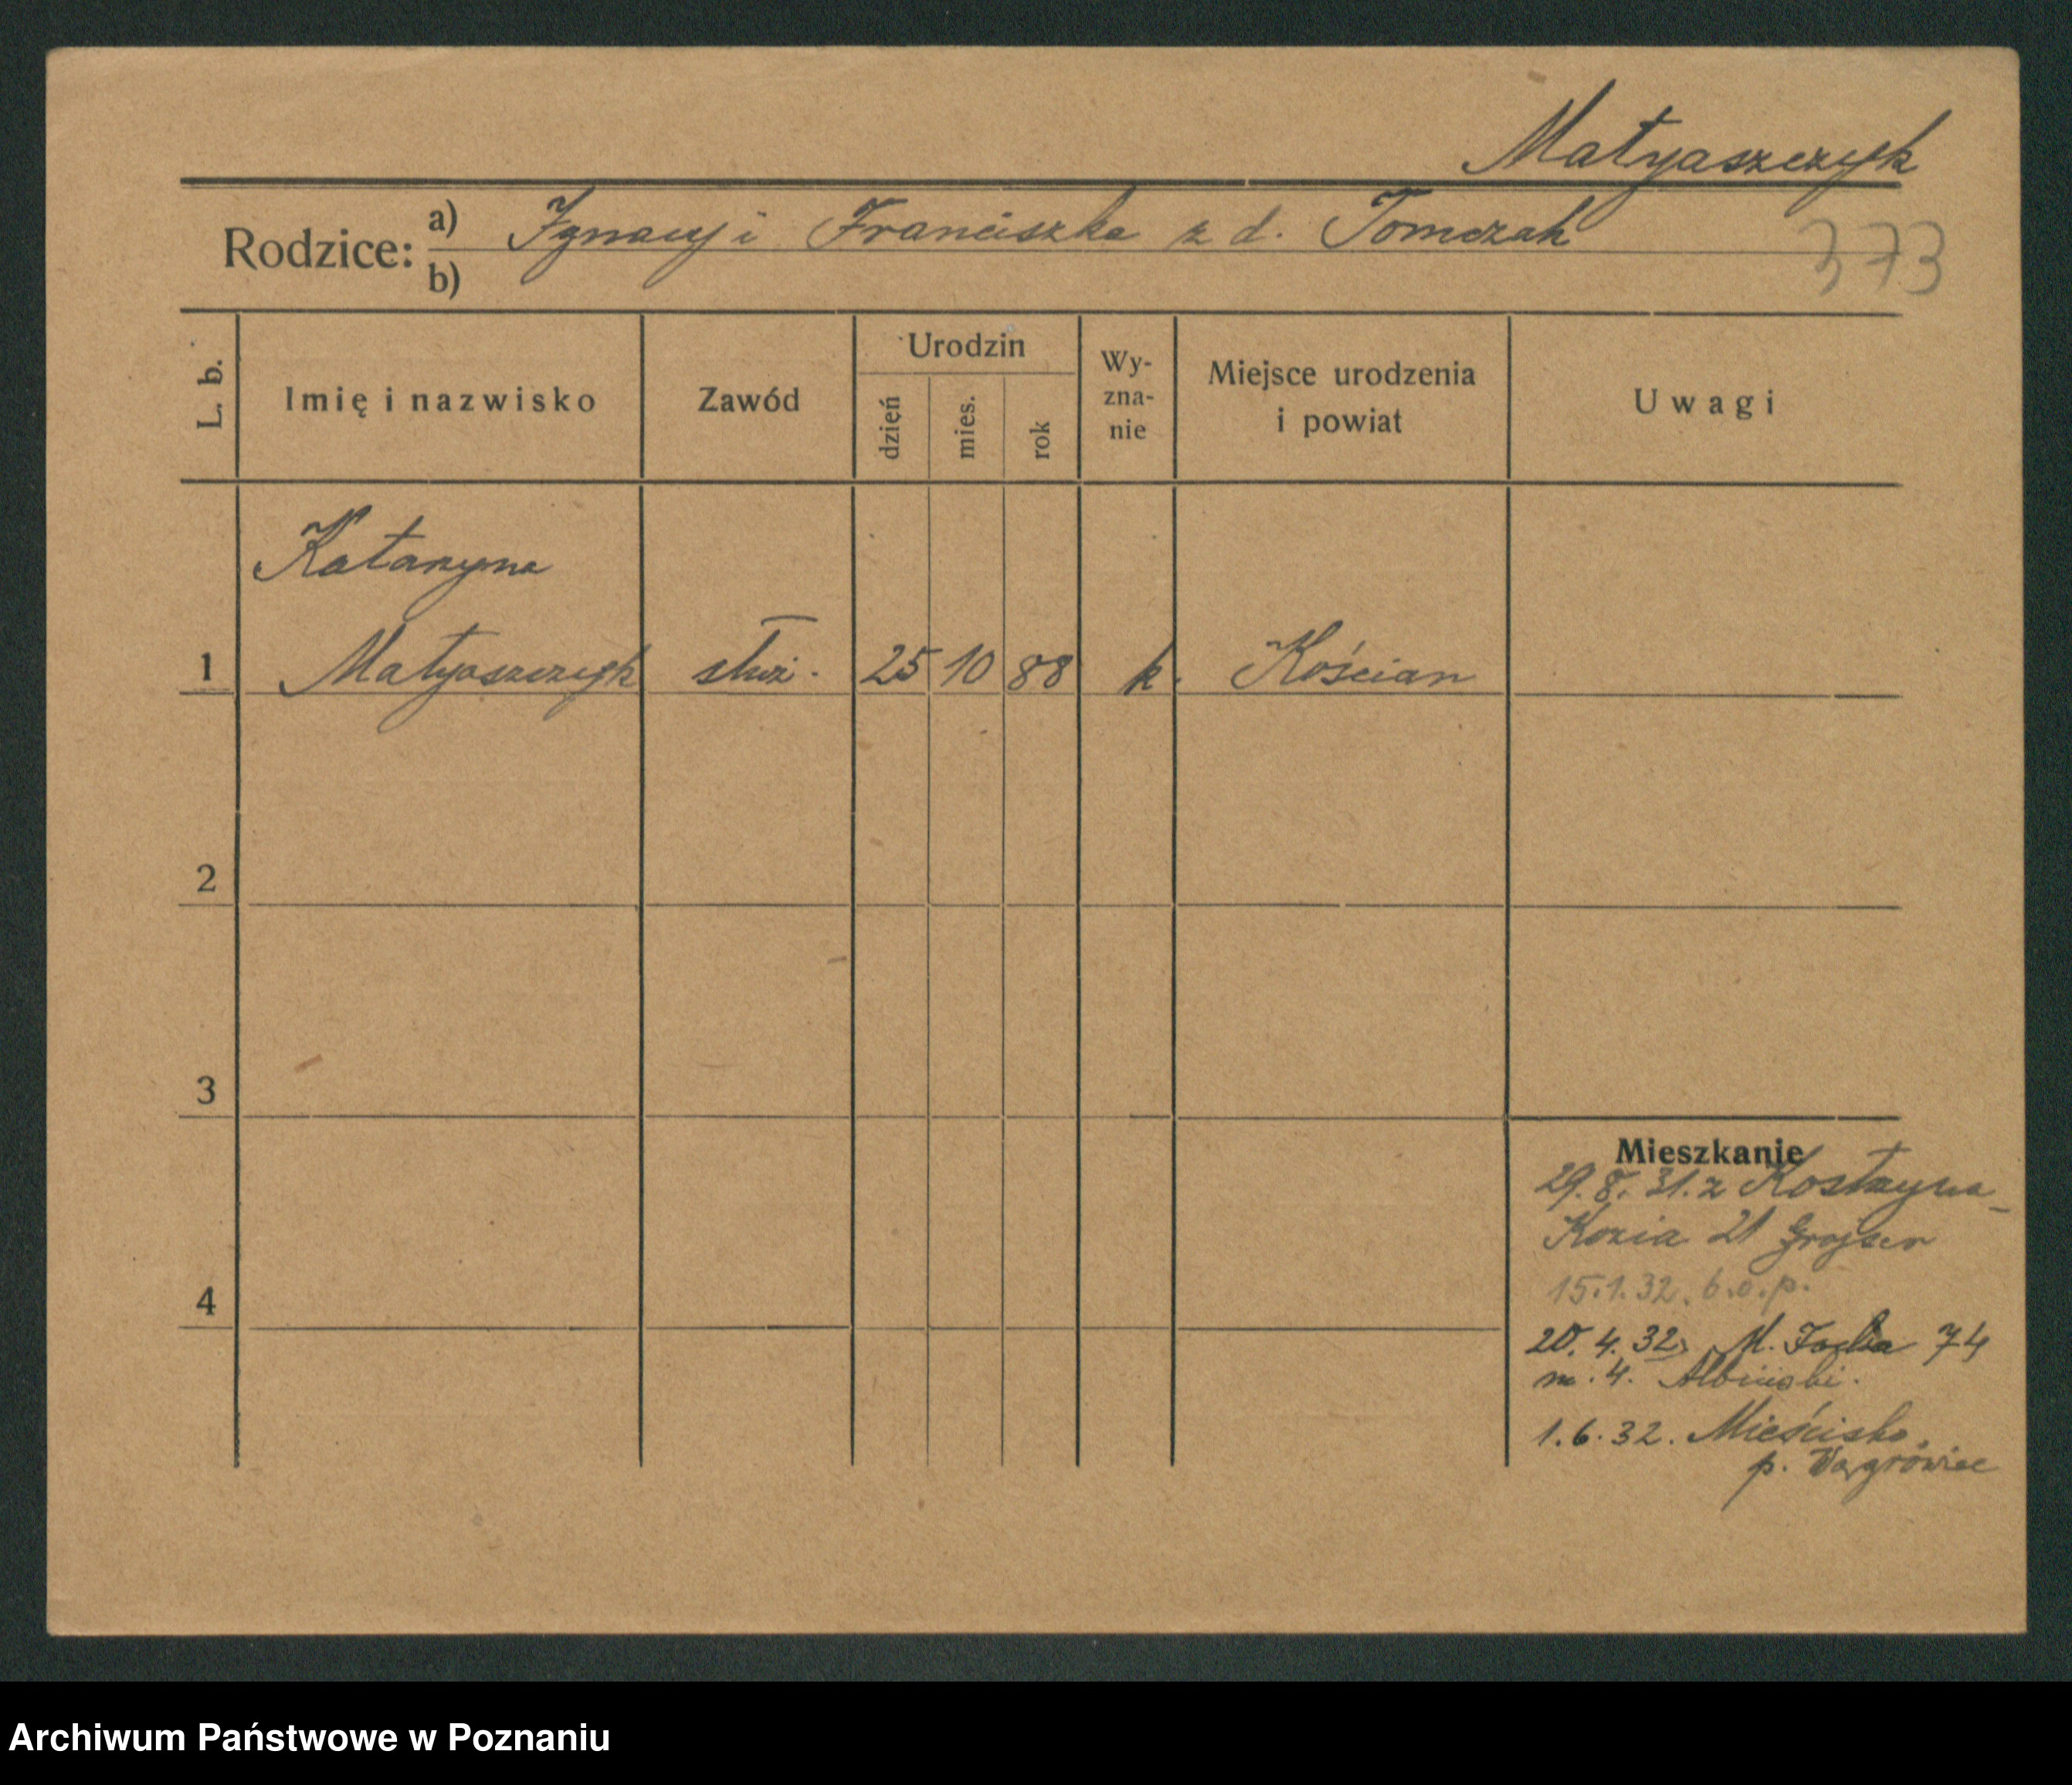 Matyaszczyk
Rodzice: a) Ignacy i Franciszka z d. Tomczak
b)
373
L. b.
Imię i nazwisko
Zawód
Urodzin
dzień
mies.
rok
Wy-
zna-
nie
Miejsce urodzenia
i powiat
Uwagi
Katarzyna
1 Matyaszczyk służ. 25 10 88 k. Kościan
2
3
4
Mieszkanie
29. 8. 31. z Kostrzyna
Kozia 21
15.1.32. b.o.p.
20. 4. 32. M. Focha 74
m. 4. Albiński.
1.6.32. Mieścisko.
p. Wągrówiec
Archiwum Państwowe w Poznaniu